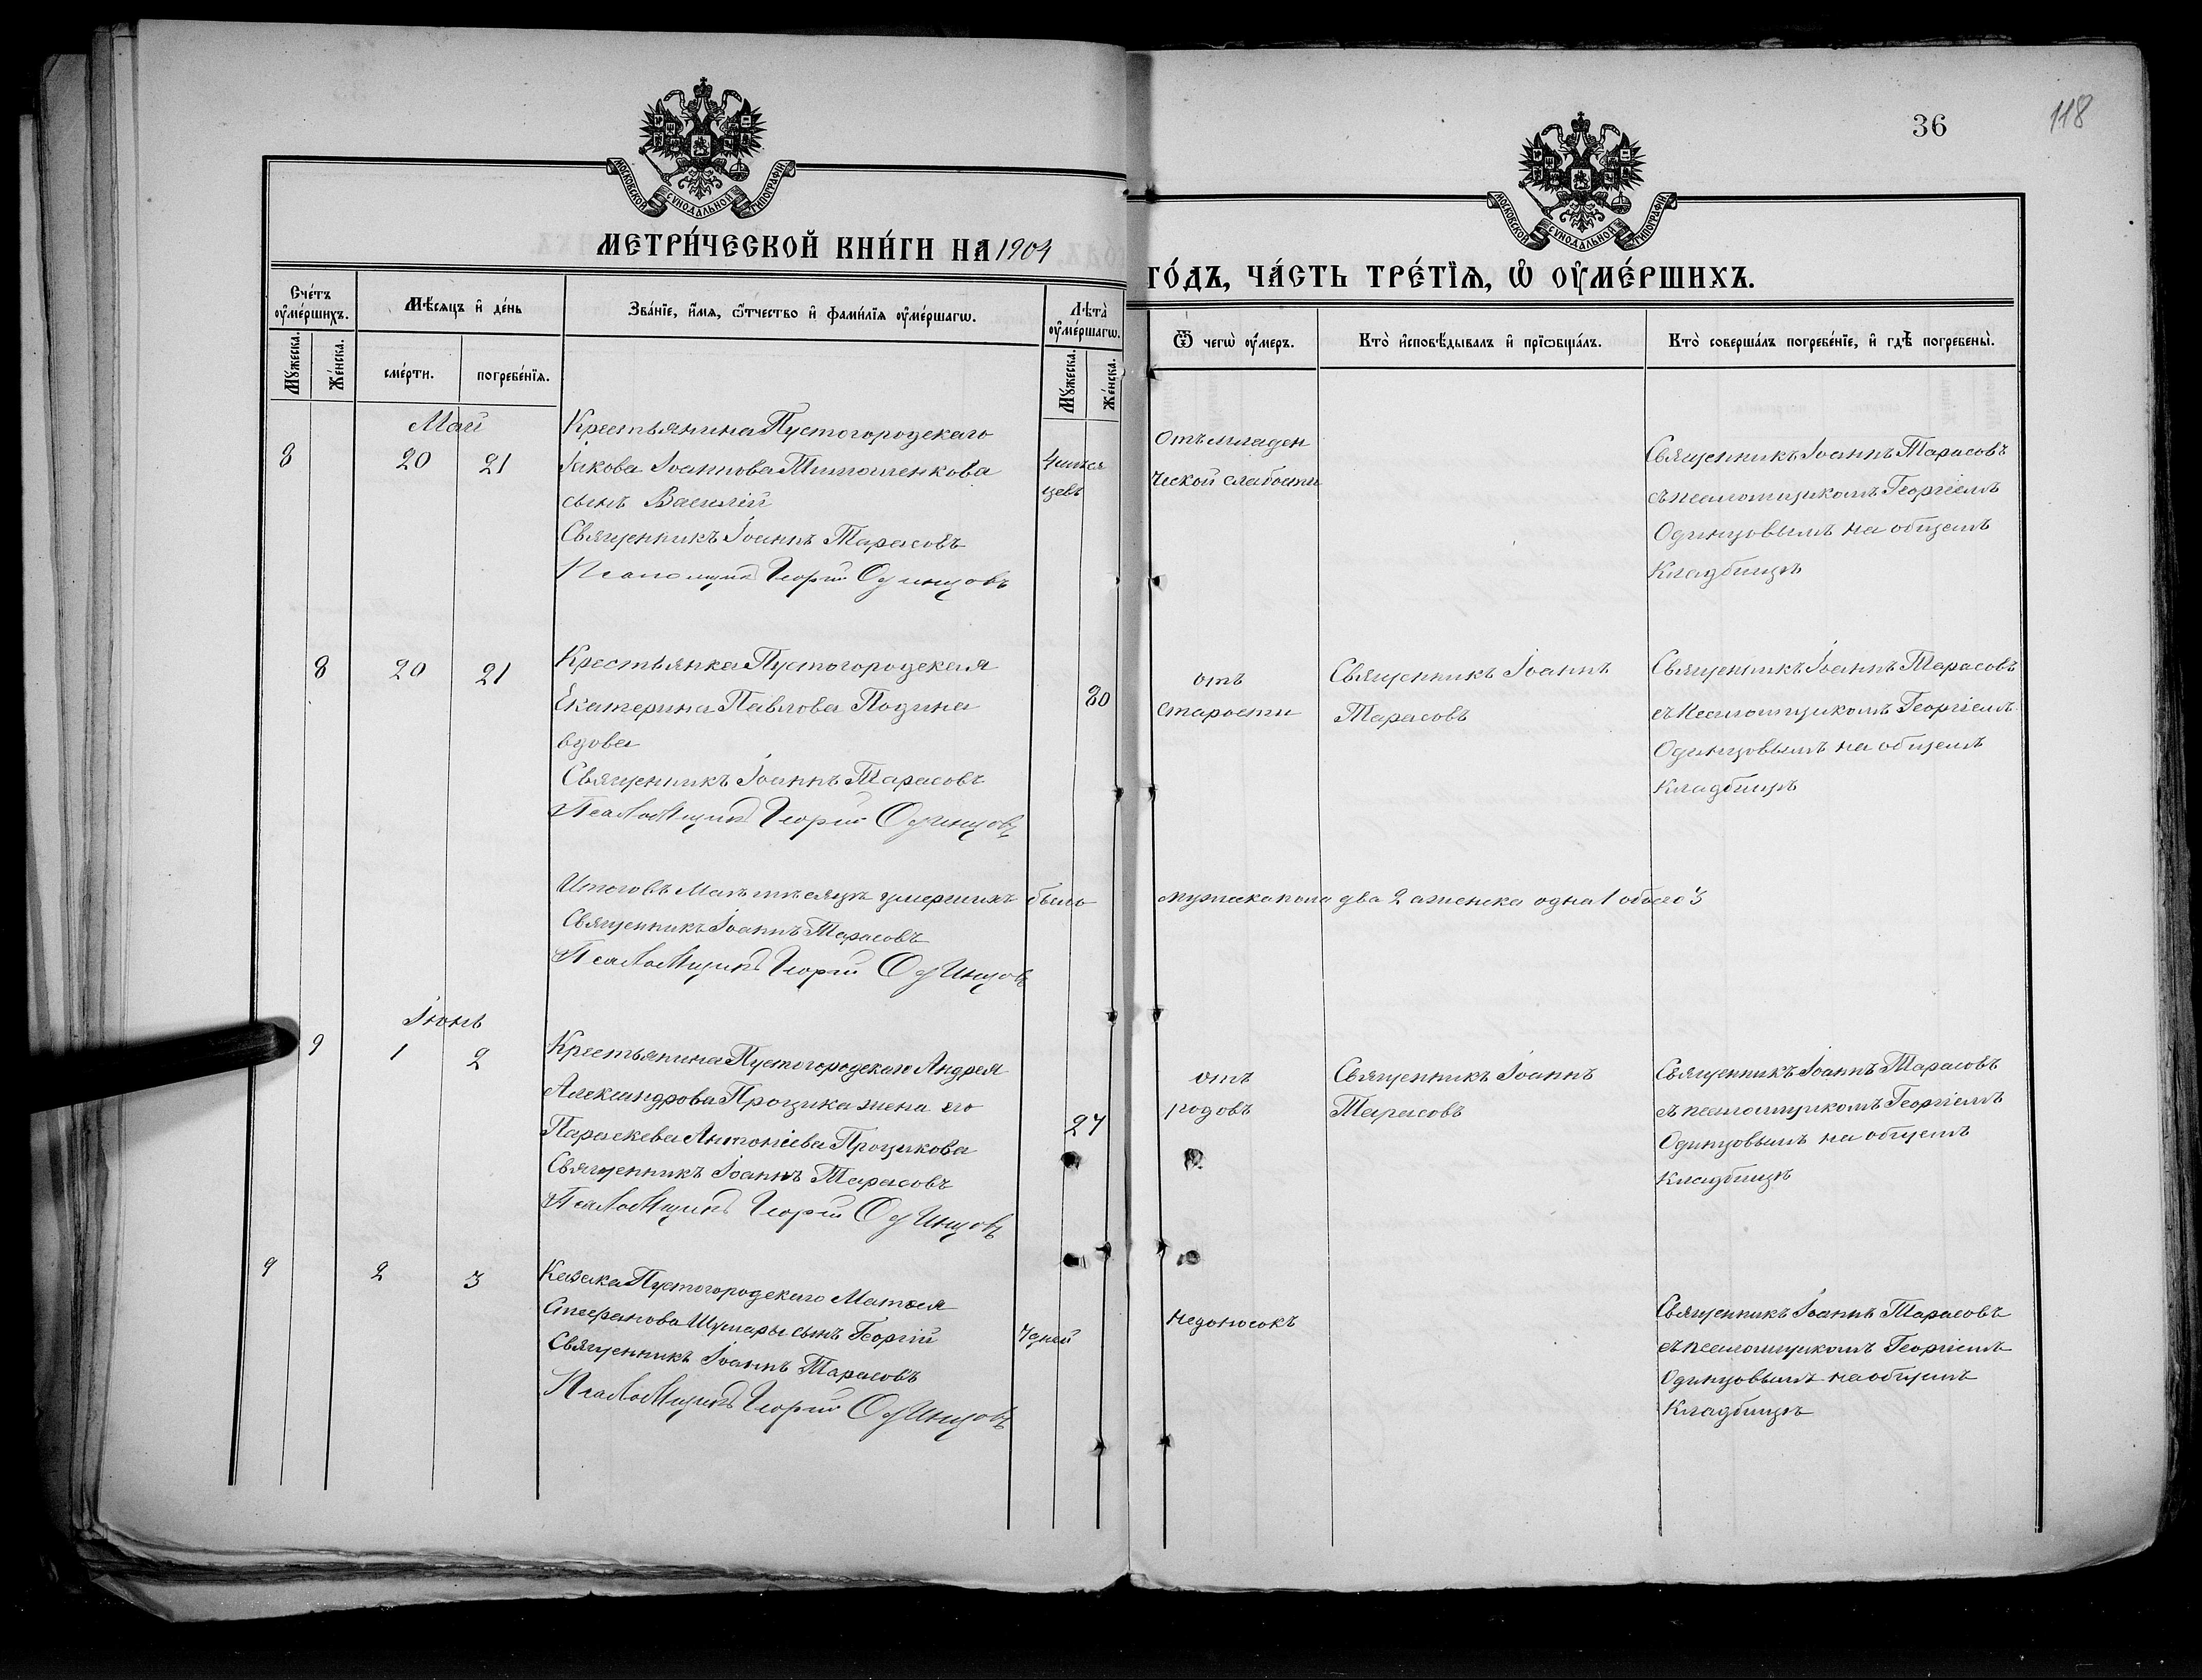 36
118
МОСКОВСКОЙ СѴНОДАЛЬНОЙ ТИПОГРАФІИ
МОСКОВСКОЙ СѴНОДАЛЬНОЙ ТИПОГРАФІИ
МЕТРИ́ЧЕСКОЙ КНИ́ГИ НА 1904
ГО́ДЪ, ЧА́СТЬ ТРЕ́ТЇѦ, Ѡ҆ ОУ҆МЕ́РШИХЪ.
Сче́тъ оу҆ме́ршихъ.
Мꙋ́жеска.
Же́нска.
Мѣ́сяцъ и҆ де́нь
сме́рти.
погребе́нїѧ.
Зва́нїе, и҆́мѧ, ѻ҆́тчество и҆ фами́лїѧ оу҆ме́ршагѡ.
Лѣ̀та оу҆ме́ршагѡ.
Мꙋ́жеска.
Же́нска.
Ѿ чегѡ̀ оу҆́меръ.
Кто̀ и҆сповѣ́дывалъ и҆ прїѡбща́лъ.
Кто̀ соверша́лъ погребе́нїе, и҆ гдѣ̀ погребены̀.
Май
8 20 21
Крестьянина Пустогородскаго
Іакова Іоаннова Тимошенкова
сынъ Василій
Священникъ Іоаннъ Тарасовъ
Псаломщикъ Георгій Одинцовъ
4 мѣся
цевъ
Отъ младен
ческой слабости
Священникъ Іоаннъ Тарасовъ
съ псаломщикомъ Георгіемъ
Одинцовымъ на общемъ
кладбищѣ
8 20 21
Крестьянка Пустогородская
Екатерина Павлова Подина
вдова
Священникъ Іоаннъ Тарасовъ
Псаломщикъ Георгій Одинцовъ
80
отъ
старости
Священникъ Іоаннъ
Тарасовъ
Священникъ Іоаннъ Тарасовъ
съ псаломщикомъ Георгіемъ
Одинцовымъ на общемъ
кладбищѣ
Итого въ Маѣ мѣсяцѣ умершихъ было мужска пола два 2 а женска одна 1 обоего 3
Священникъ Іоаннъ Тарасовъ
Псаломщикъ Георгій Одинцовъ
Іюнь
9 1 2
Крестьянина Пустогородскаго Андрея
Александрова Процика жена его
Параскева Антоніева Процикова
Священникъ Іоаннъ Тарасовъ
Псаломщикъ Георгій Одинцовъ
27
отъ
родовъ
Священникъ Іоаннъ
Тарасовъ
Священникъ Іоаннъ Тарасовъ
съ псаломщикомъ Георгіемъ
Одинцовымъ на общемъ
кладбищѣ
9 2 3
Казака Пустогородскаго Матѳея
Стефанова Шумары сынъ Георгій
Священникъ Іоаннъ Тарасовъ
Псаломщикъ Георгій Одинцовъ
7 дней
недоносокъ
Священникъ Іоаннъ Тарасовъ
съ псаломщикомъ Георгіемъ
Одинцовымъ на общемъ
кладбищѣ